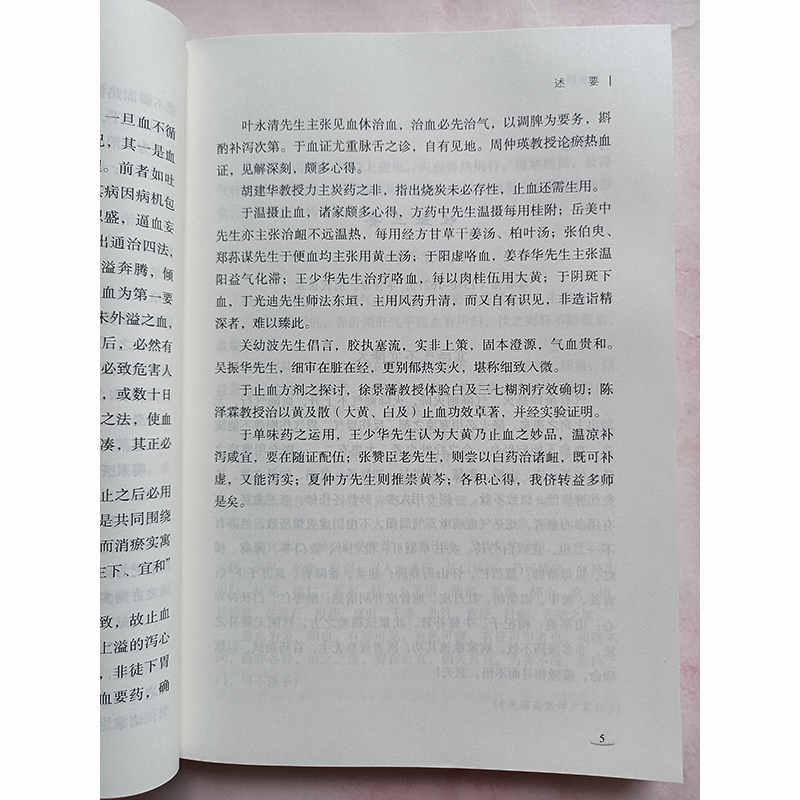 一旦血不循
其一是血
是。前者如吐
病因病机包
盛，逼血妄
出通治四法，
溢奔腾，倾
血为第一要
未外溢之血，
后，必然有
必致危害人
，或数十日
之法，使血
凑，其正必
止之后必用
是共同围绕
而消瘀实寓
下、宜和”
致，故止血
上溢的泻心
，非徒下胃
血要药，确
述 要
叶永清先生主张见血休治血，治血必先治气，以调脾为要务，斟
酌补泻次第。于血证尤重脉舌之诊，自有见地。周仲瑛教授论瘀热血
证，见解深刻，颇多心得。
胡建华教授力主炭药之非，指出烧炭未必存性，止血还需生用。
于温摄止血，诸家颇多心得，方药中先生温摄每用桂附；岳美中
先生亦主张治衄不远温热，每用经方甘草干姜汤、柏叶汤；张伯臾、
郑荪谋先生于便血均主张用黄土汤；于阳虚咯血，姜春华先生主张温
阳益气化滞；王少华先生治疗咯血，每以肉桂伍用大黄；于阴斑下
血，丁光迪先生师法东垣，主用风药升清，而又自有识见，非造诣精
深者，难以臻此。
关幼波先生倡言，胶执塞流，实非上策，固本澄源，气血贵和。
吴振华先生，细审在脏在经，更别郁热实火，堪称细致入微。
于止血方剂之探讨，徐景藩教授体验白及三七糊剂疗效确切；陈
泽霖教授治以黄及散（大黄、白及）止血功效卓著，并经实验证明。
于单味药之运用，王少华先生认为大黄乃止血之妙品，温凉补
泻咸宜，要在随证配伍；张赞臣老先生，则尝以白药治诸衄，既可补
虚，又能泻实；夏仲方先生则推崇黄芩；各积心得，我侪转益多师
是矣。
5